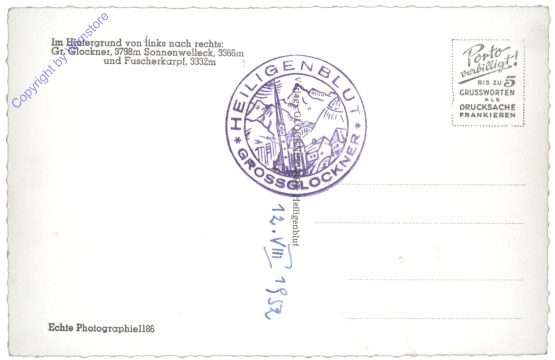 Im Hintergrund von links nach rechts:
Gr. Glockner, 3798m Sonnenwelleck, 3366m
und Fuscherkarpf, 3332m
Copyright by
Porto
verbilligt!
BIS ZU 5
GRUSSWORTEN
ALS
DRUCKSACHE
FRANKIEREN
* HEILIGENBLUT *
GROSSGLOCKNER
Heiligenblut
12. VIII 1952
Echte Photographie1186